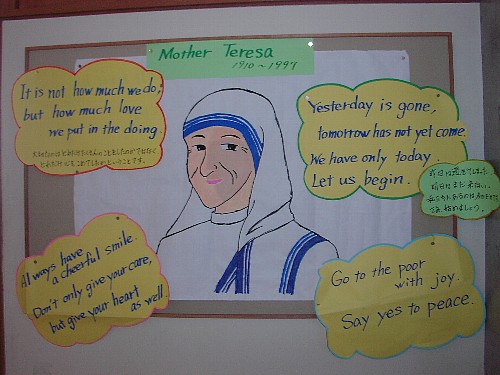 Mother Teresa
1910~1997
It is not how much we do,
but how much love
we put in the doing.
Yesterday is gone,
tomorrow has not yet come.
We have only today.
Let us begin.
明日はまだ来ない。
始めましょう。
Always have
a cheerful smile.
Don't only give your care,
but give your heart
as well.
Go to the poor
with joy.
Say yes to peace.